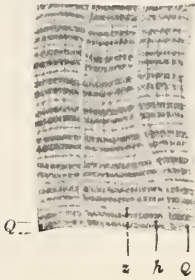 Q
z h Q